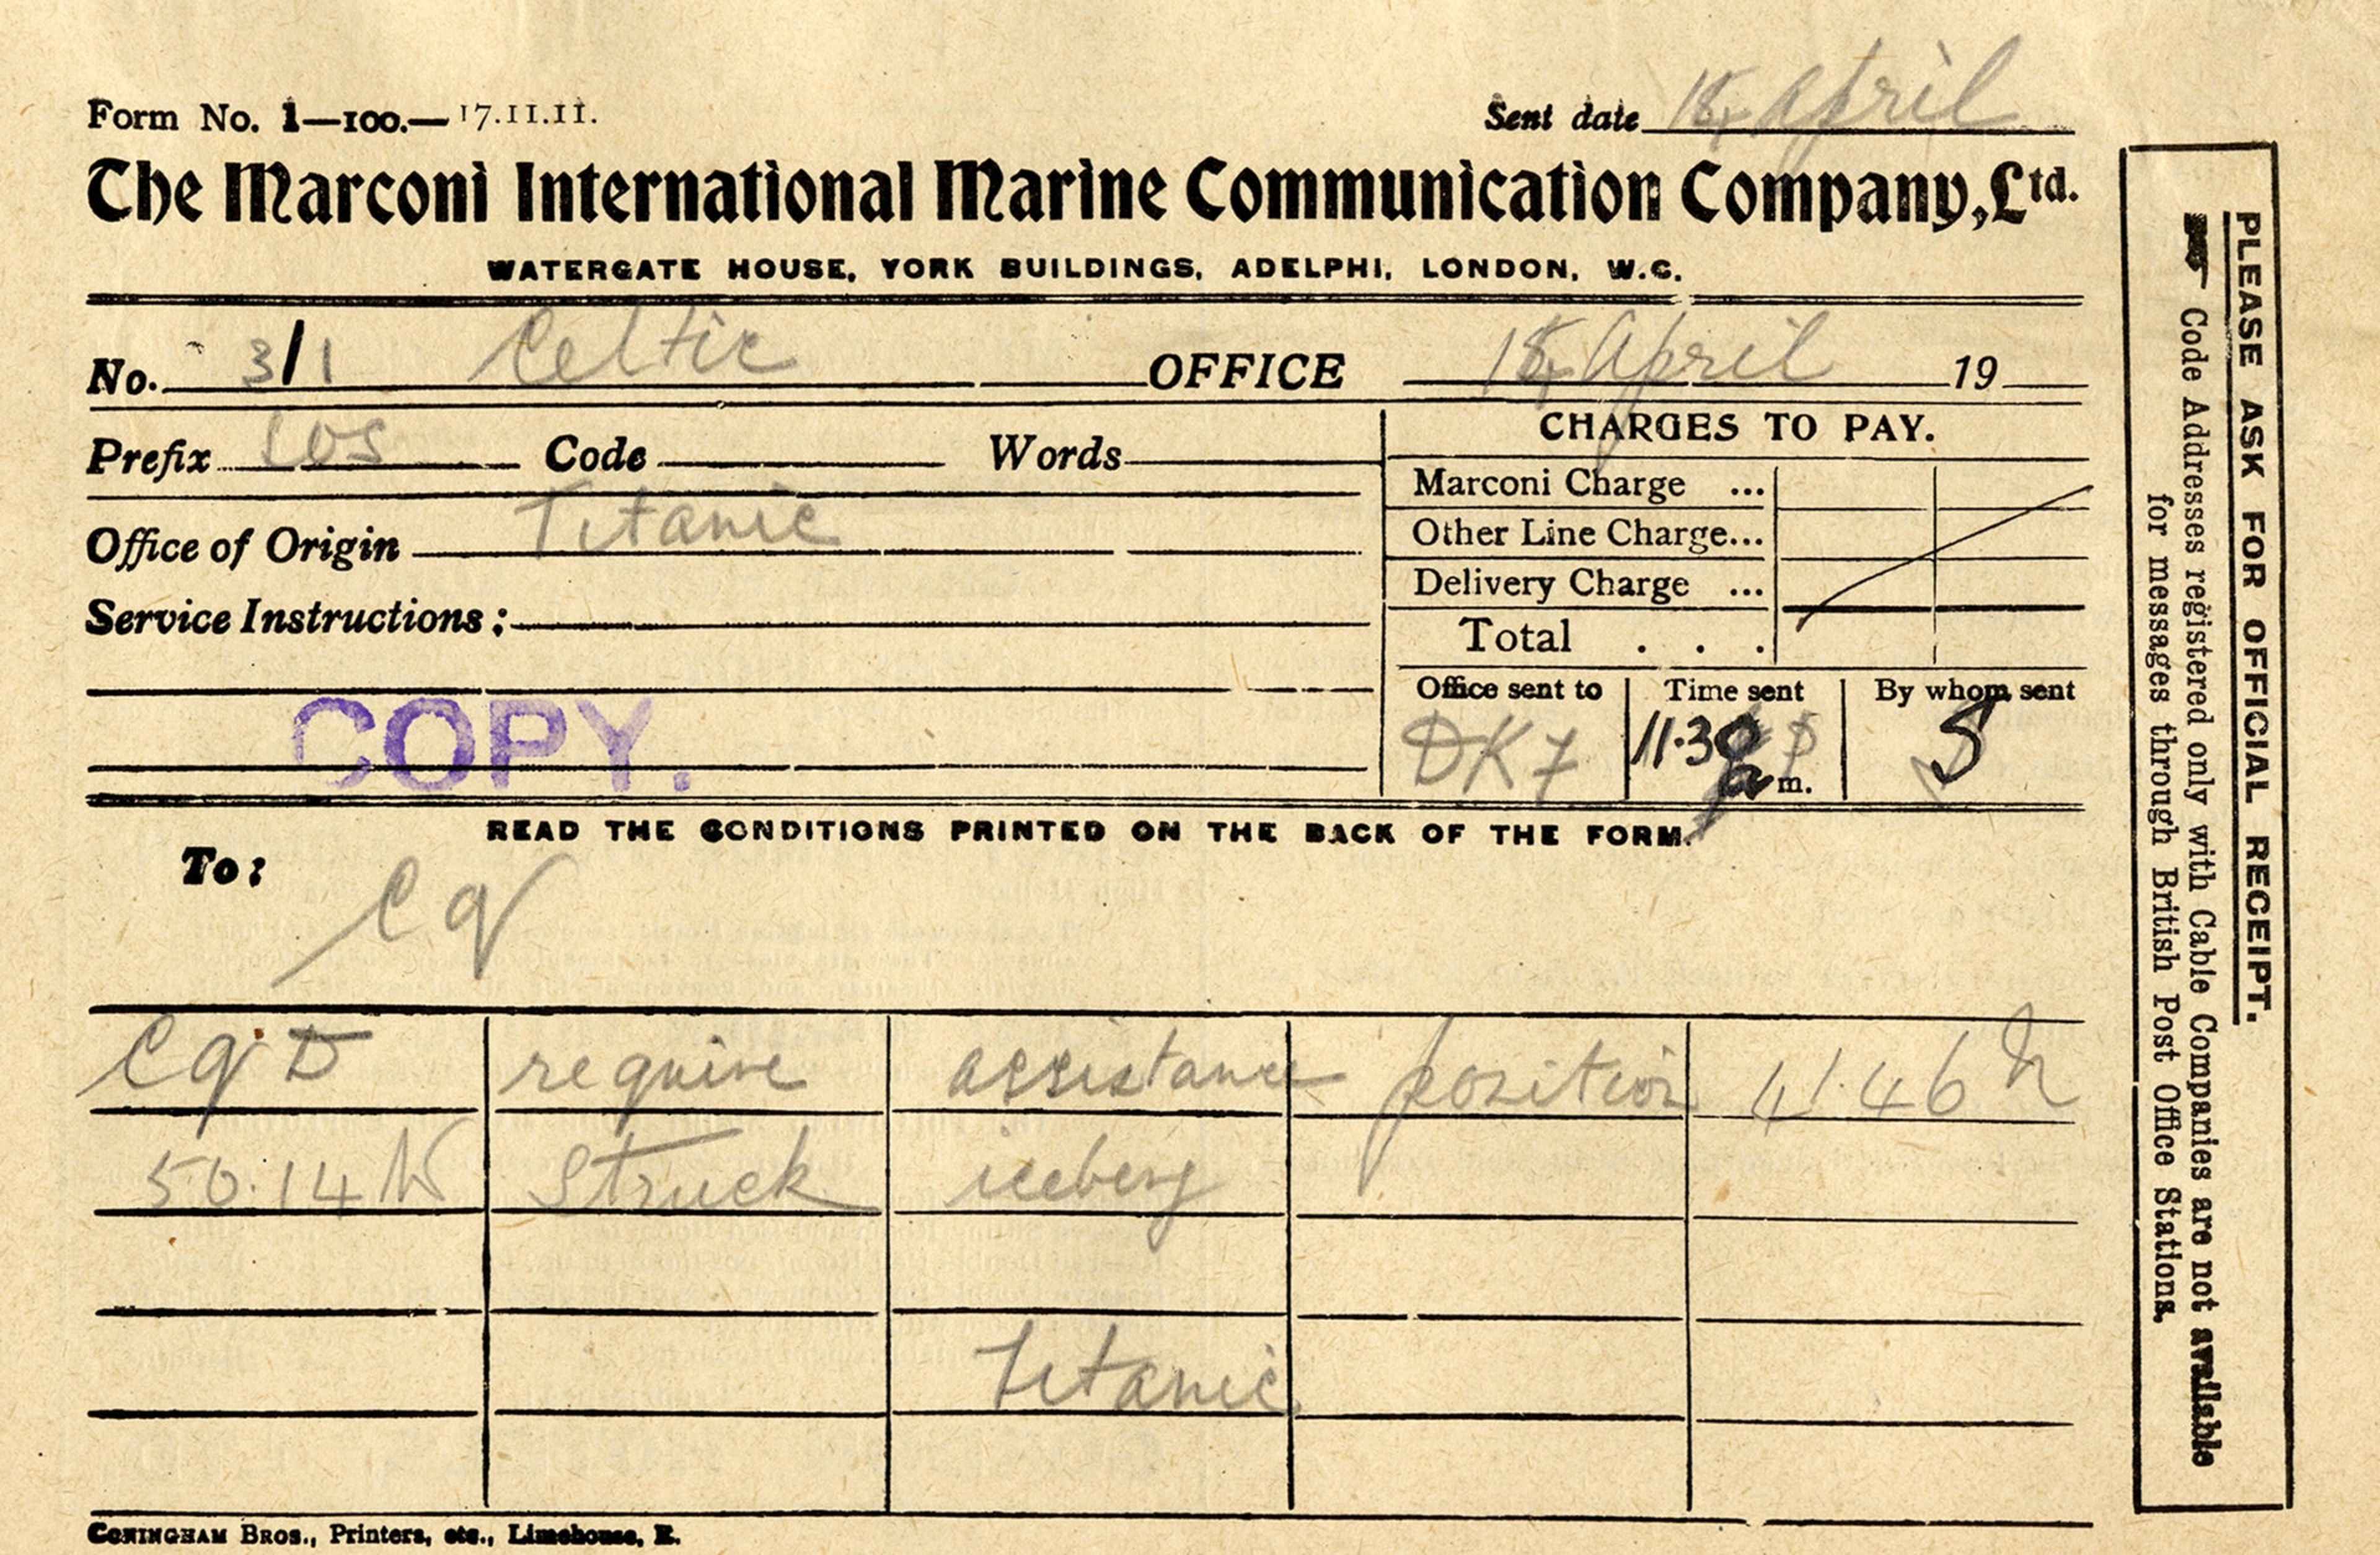 Form No. 1—100.—17.11.11.
Sent date April
The Marconi International Marine Communication Company, Ltd.
WATERGATE HOUSE, YORK BUILDINGS, ADELPHI, LONDON, W.C.
No. 3/1 Celtic OFFICE April 19
Prefix Code Words
Office of Origin Titanic
Service Instructions:
COPY.
CHARGES TO PAY.
Marconi Charge ...
Other Line Charge...
Delivery Charge ...
Total . . .
Office sent to Time sent By whom sent
DKF 11.30 a m. S
READ THE CONDITIONS PRINTED ON THE BACK OF THE FORM.
To:
Cq
CqD require assistance position 41.46 N
50.14 W Struck iceberg
Titanic
CONINGHAM BROS., Printers, etc., Limehouse, E.
PLEASE ASK FOR OFFICIAL RECEIPT.
Code Addresses registered only with Cable Companies are not available
for messages through British Post Office Stations.